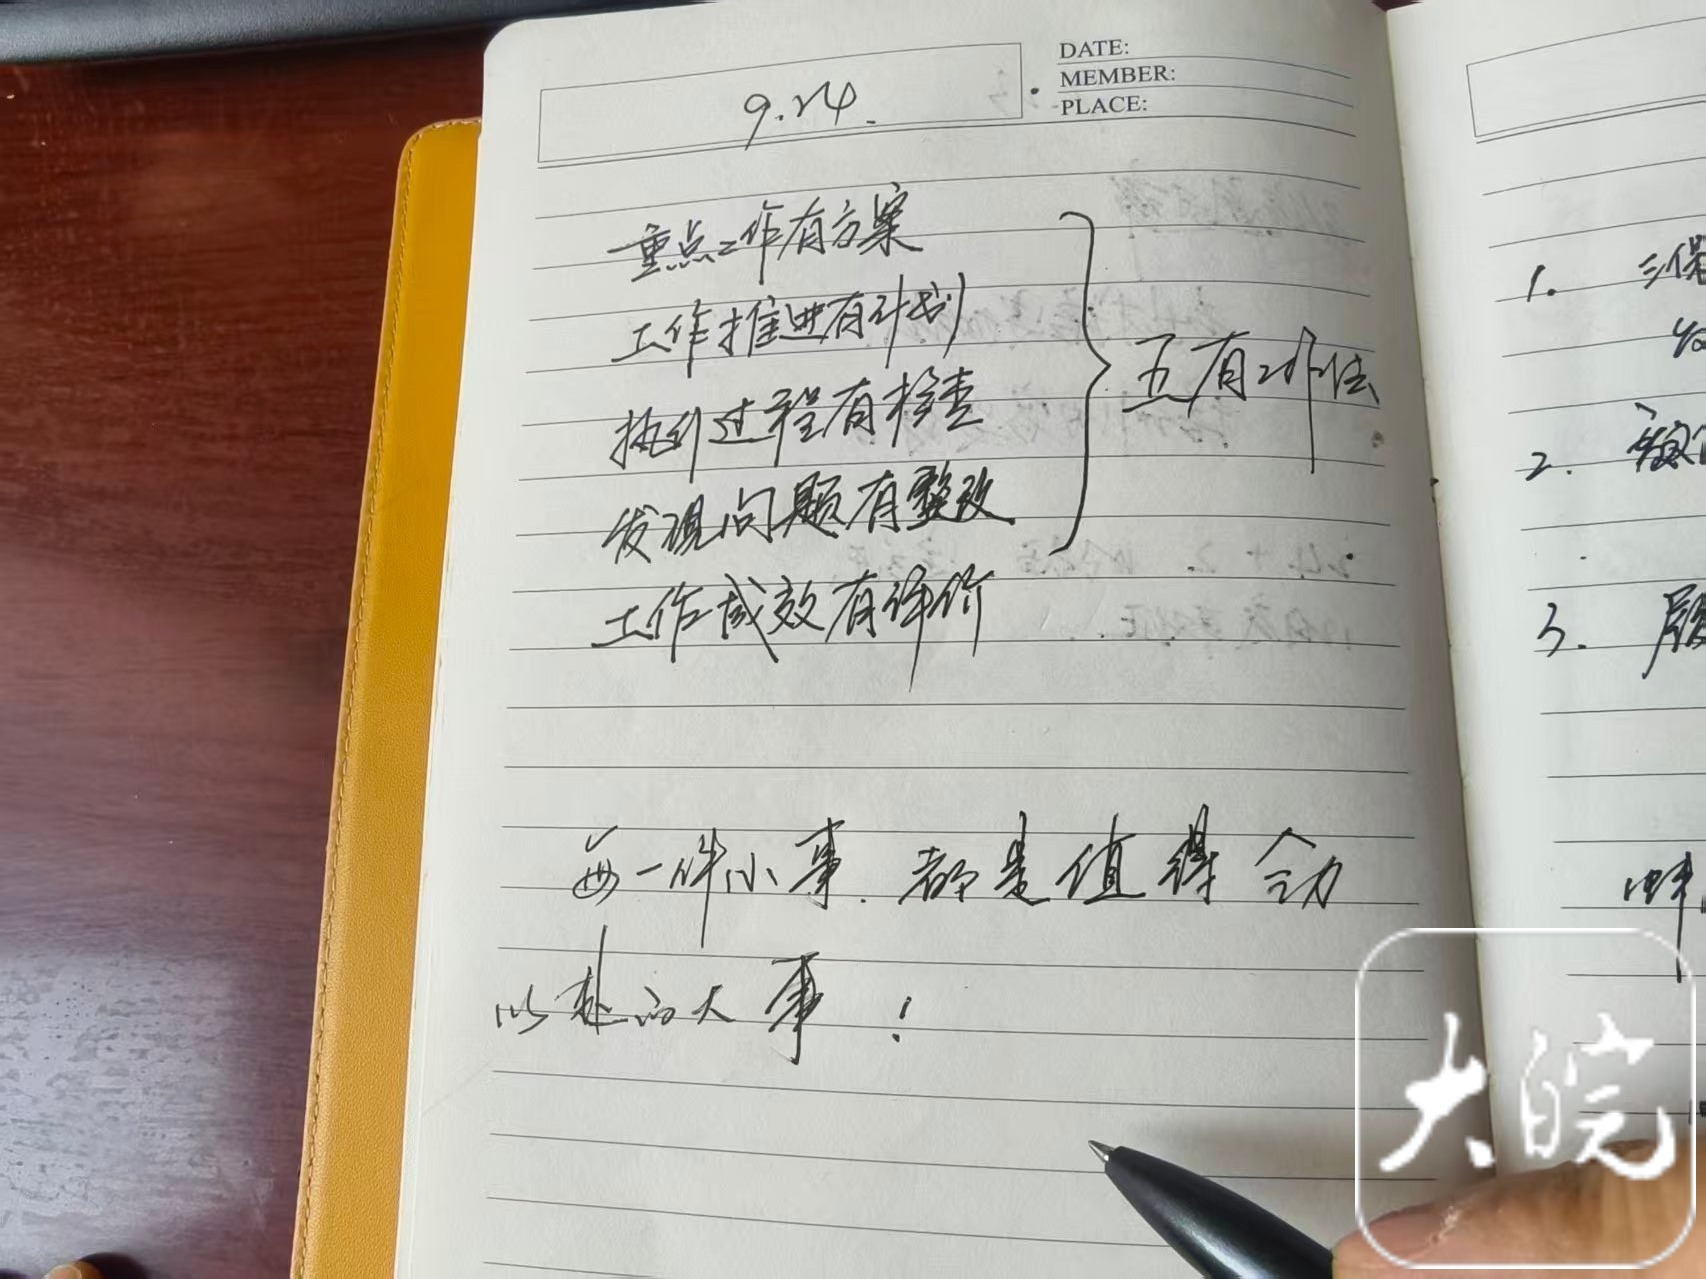 9.24.
DATE:
MEMBER:
PLACE:
重点工作有方案
工作推进有计划
执行过程有检查
发现问题有整改
工作成效有评价
五有工作法
每一件小事.都是值得全力
以赴的大事!
1. 三保
2.
3.
大皖